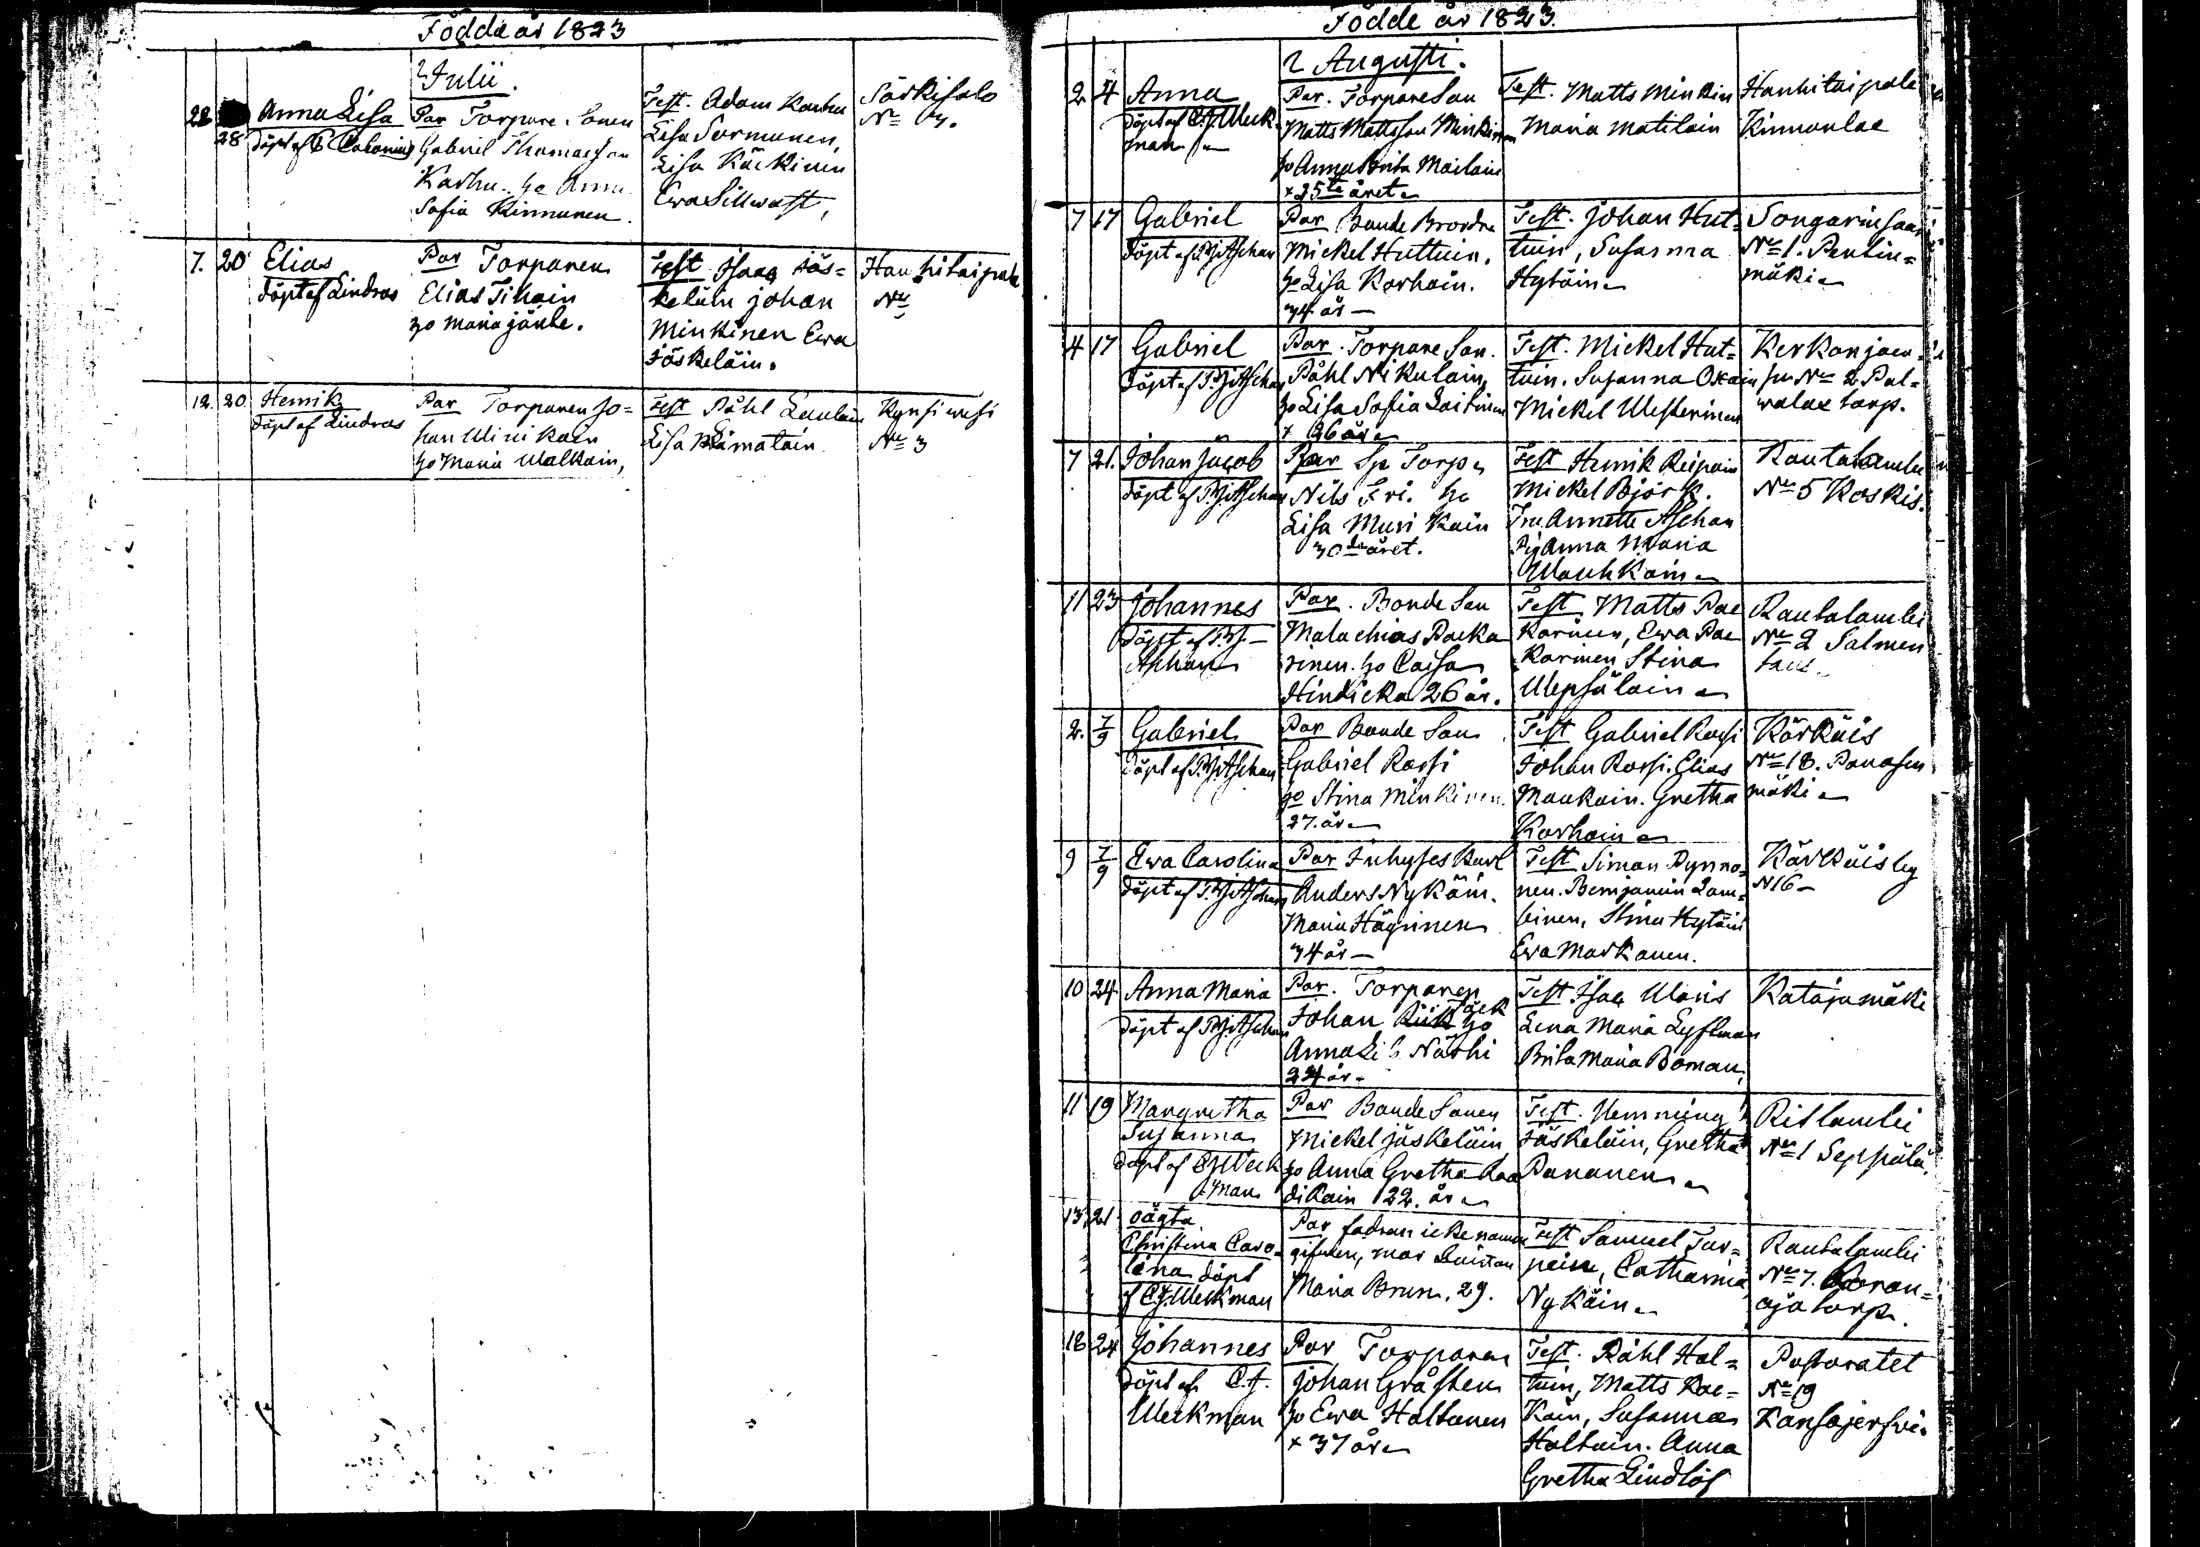 Födde år 1823
Julii.
22 28 Anna Lisa
döpt af C. Calonius
Par Torpare Sonen
Gabriel Thomasson
Karhu. ho Anna
Sofia Kinnunen.
Test. Adam Karhu
Lisa Sormunen,
Lisa Käckinen
Ewa Sillwast,
Särkisalo
No 7.
7. 20 Elias
döpt af Lindros
Par Torparen
Elias Tikain
ho Maria jänbe.
Test Isaac Jäs=
keläin johan
Minkinen Ewa
Jäskeläin.
Hanhitaipale
No
12. 20 Henrik
döpt af Lindros
Par Torparen Jo=
han Minikain
ho Maria Walkain,
Test Påhl Laulain
Lisa Limatain
Kynsiwesi
No 3
Födde år 1823.
Augusti.
2 4 Anna
döpt af C.J. Weck=
man
Par. Torpare Son
Matts Mattsson Minkinen
ho Anna Brita Matilain
+ 25te året
Test. Matts Minkin
Maria Matilain
Hanhitaipale
Kinnanlae
7 17 Gabriel
döpt af P.J. Aschan
Par Bonde Brodre
Mickel Huttuin.
ho Lisa Korhoin.
34 år —
Test. Johan Hut=
tuin, Susanna
Hytöin
Songarinsaari
No 1. Pentin=
mäki
4 17 Gabriel
döpt af P.J. Aschan
Par. Torpare Son.
Påhl Nikulain,
ho Lisa Sofia Laitinen
+ 26 år
Test. Mickel Hut=
tuin. Susanna Oxain
Mickel Westerinen
Kerkonjoen
suu No 2 Pal=
walax torp.
7 21. Johan Jacob
döpt af P.J. Aschan
Par Sp Torp.
Nils Fri. ho
Lisa Muri Kain
30de året.
Test Henrik Reipain
Mickel Björk.
Fru Annette Aschan
Pig Anna Maria
Wauhkoin
Rautalambi
No 5 Koskis.
11 23 Johannes
döpt af P.J.
Aschan
Par. Bonde Son
Malachias Packa
rinen. ho Caisa
Hindicka 26 år.
Test Matts Pac
karinen, Ewa Pac
karinen Stina
Wepsäläin
Rautalambi
No 2 Salmen
taus.
2. 7/9 Gabriel
döpt af P.J. Aschan
Par Bonde Son
Gabriel Rossi
ho Stina Minkinen.
27. år
Test Gabriel Rossi
Johan Rossi. Elias
Maukoin. Gretha
Korhoin
Kärkäis
No 18. Panasen
mäki
9 7/9 Ewa Carolina
döpt af P.J. Aschan
Par Inhyses Karl
Anders Nykäin.
Maria Häyrinen
34 år —
Test Simon Pynnö=
nen. Benjamin Lam=
binen, Stina Hytöin
Ewa Markanen.
Kärkäis by
N 16 —
10 24 Anna Maria
döpt af P.J. Aschan
Par. Torparen
Johan Räck ho
Anna Lis. Närhi
24 år.
Test Isac Waris
Lena Maria Lyftman
Brita Maria Boman,
Katajamäki
11 19 Margretha
Susanna
döpt af C.J. Weck
man
Par Bonde Sonen
Mickel jäskeläin
ho Anna Gretha Raa
dikain 22. år
Test. Hemming
Jäskeläin, Gretha
Pananen
Ritlambi
No 1 Seppälä.
13. 21 oägta
Christina Caro=
lina döpt
af C.J. Weckman
Par fadren icke namn
gifven, mor
Maria Brun. 29.
Test Samuel Tar=
wain, Catharina
Nykäin
Rautalambi
No 7.
oja torp.
18 24 Johannes
döpt af C.J.
Weckman
Par Torparen
Johan Gråsten
ho Ewa Haltanen
+ 37 år
Test. Påhl Hal=
tuin, Matts Rae=
kain, Susanna
Haltuin. Anna
Gretha Lindlöf
Pastoratet
No 19
Kansojerfvi.